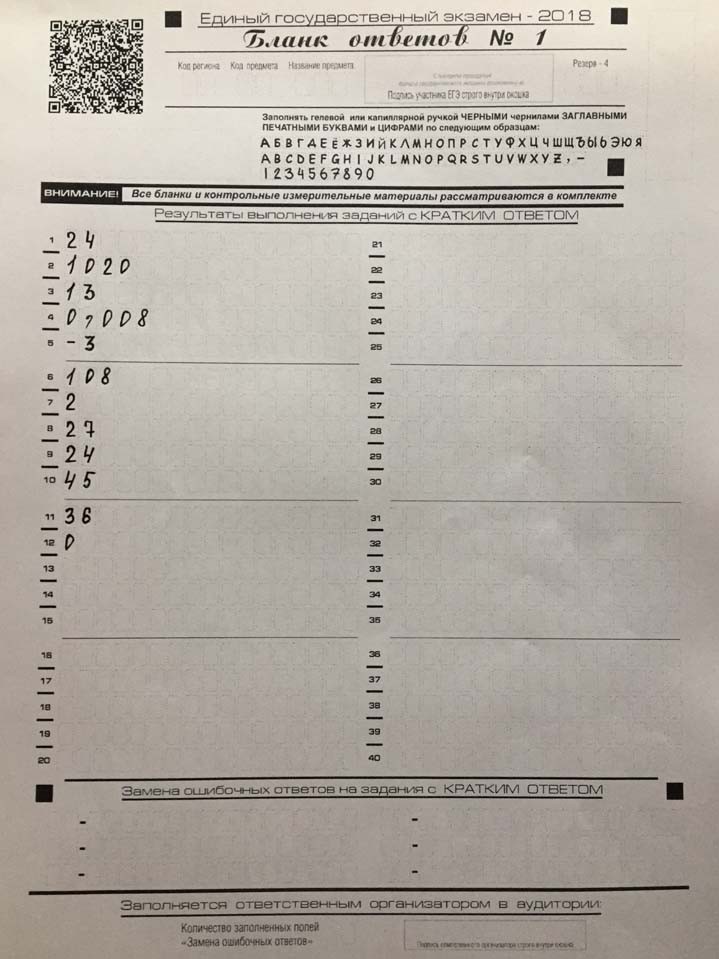 Единый государственный экзамен - 2018
Бланк ответов № 1
Код региона Код предмета Название предмета Резерв - 4
Подпись участника ЕГЭ строго внутри окошка
Заполнять гелевой или капиллярной ручкой ЧЕРНЫМИ чернилами ЗАГЛАВНЫМИ
ПЕЧАТНЫМИ БУКВАМИ и ЦИФРАМИ по следующим образцам:
АБВГДЕЁЖЗИЙКЛМНОПРСТУФХЦЧШЩЪЫЬЭЮЯ
ABCDEFGHIJKLMNOPQRSTUVWXYZ,-
1234567890
ВНИМАНИЕ! Все бланки и контрольные измерительные материалы рассматриваются в комплекте
Результаты выполнения заданий с КРАТКИМ ОТВЕТОМ
1 24 21
2 1020 22
3 13 23
4 0,008 24
5 -3 25
6 108 26
7 2 27
8 27 28
9 24 29
10 45 30
11 36 31
12 0 32
13 33
14 34
15 35
16 36
17 37
18 38
19 39
20 40
Замена ошибочных ответов на задания с КРАТКИМ ОТВЕТОМ
- -
- -
- -
Заполняется ответственным организатором в аудитории:
Количество заполненных полей
«Замена ошибочных ответов»
Подпись ответственного организатора строго внутри окошка